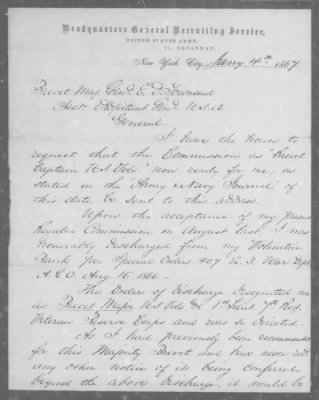 Headquarters General Recruiting Service,
UNITED STATES ARMY,
BROADWAY,
New York City, Jan'y 4th 1867
Brevet Maj. Gen'l. E. D. Townsend
Asst. Adjutant Gen'l. U.S.A
General
I have the honor to
request that the Commission as Brevet
Captain U.S. Vols now ready for me, as
stated in the Army & Navy Journal of
this date be sent to this address.
Upon the acceptance of my present
Regular Commission in August last, I was
honorably discharged from my Volunteer
Rank per Special Orders 407 Ex. 3. War Dept
A.G.O. Aug. 16 1866—
The Orders of Discharge designated me
as Brevet Major U.S. Vols 1st Lieut. 7th Regt.
Veteran Reserve Corps and was so directed.
As I had previously been recommended
for this Majority Brevet and have never rec'd
any other notice of its being conferred,
beyond the above discharge, it would be